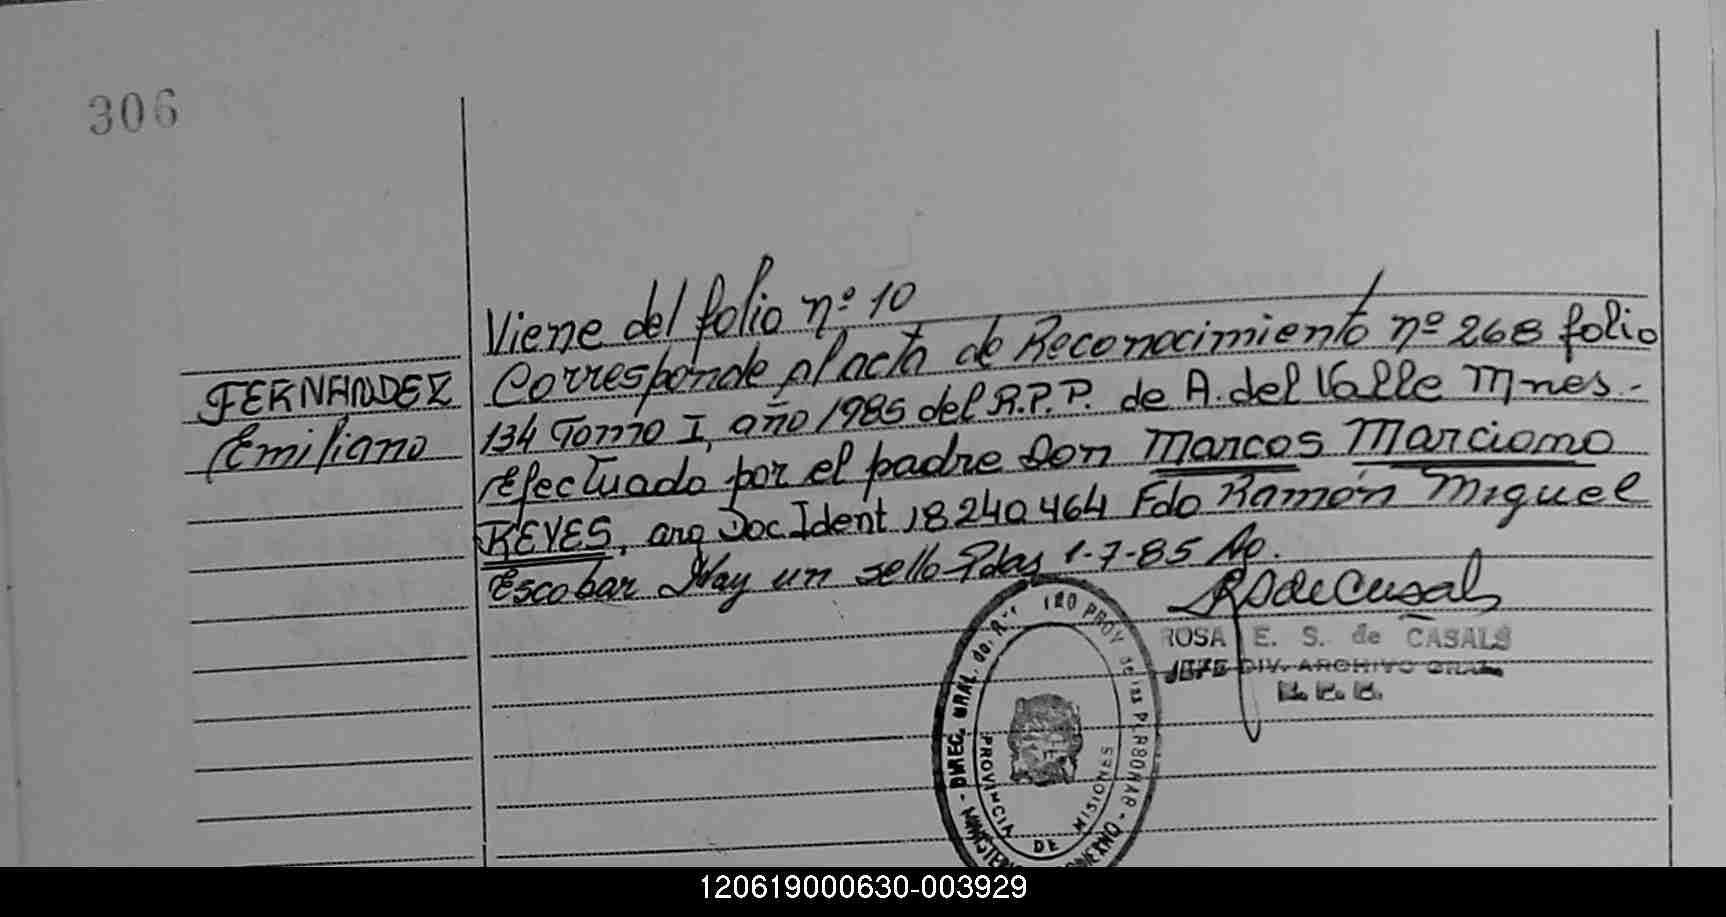 306
Viene del folio nº 10
Corresponde al acta de Reconocimiento nº 268 folio
FERNANDEZ
134 Tomo I, año 1985 del R.P.P. de A. del Valle Mnes.-
Emiliano
efectuado por el padre Don Marcos Marciono
REYES, arg Doc Ident 18240464 Fdo Ramón Miguel
Escobar Hay un sello Pdas 1-7-85
ROSA E. S. de CASALS
JEFE DIV. ARCHIVO GRAL.
DIREC. GRAL. do.
PROV
PROVINCIA DE MISIONES
120619000630-003929